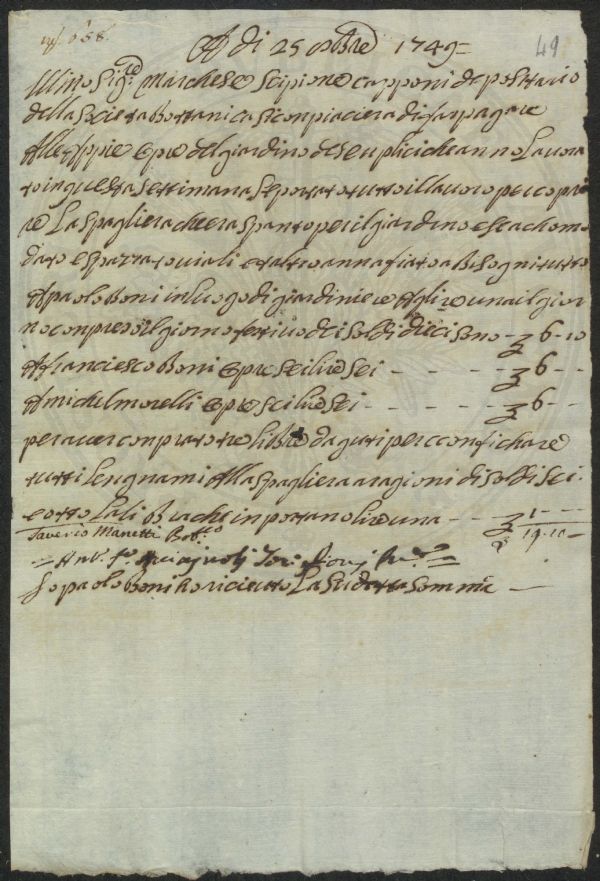 49
A di 25 8bre 1749 =
Ill.mo Sig.re Marchese Scipione Capponi depositario
della Societa Bottanica si conpiacera di far pagare
alle Appie opre del giardino de Senplici che anno Lavora
to in questa settimana e portato tutto il lavoro per copri
re La spagliera che era spanto per il giardino e
dato e spazzato viali et altro annafiato a Bisogni tutto
A paolo Boni in luogo di giardiniere A lire una il gior
no conpreso il giorno festivo di soldi dieci sono - £ 6 - 10
A franciesco Boni opre sei lire sei - - - - £ 6 - -
A michel morelli opre sei lire sei - - - - £ 6 - -
per aver conprato tre libbre d aguti per confichare
tutti Lengnami Alla spagliera a ragioni di soldi sei
e otto La libra che inportano lire una - - £ 1 - -
19.10
Saverio Manetti
Io paolo Boni ho riceuto La sudetta somma